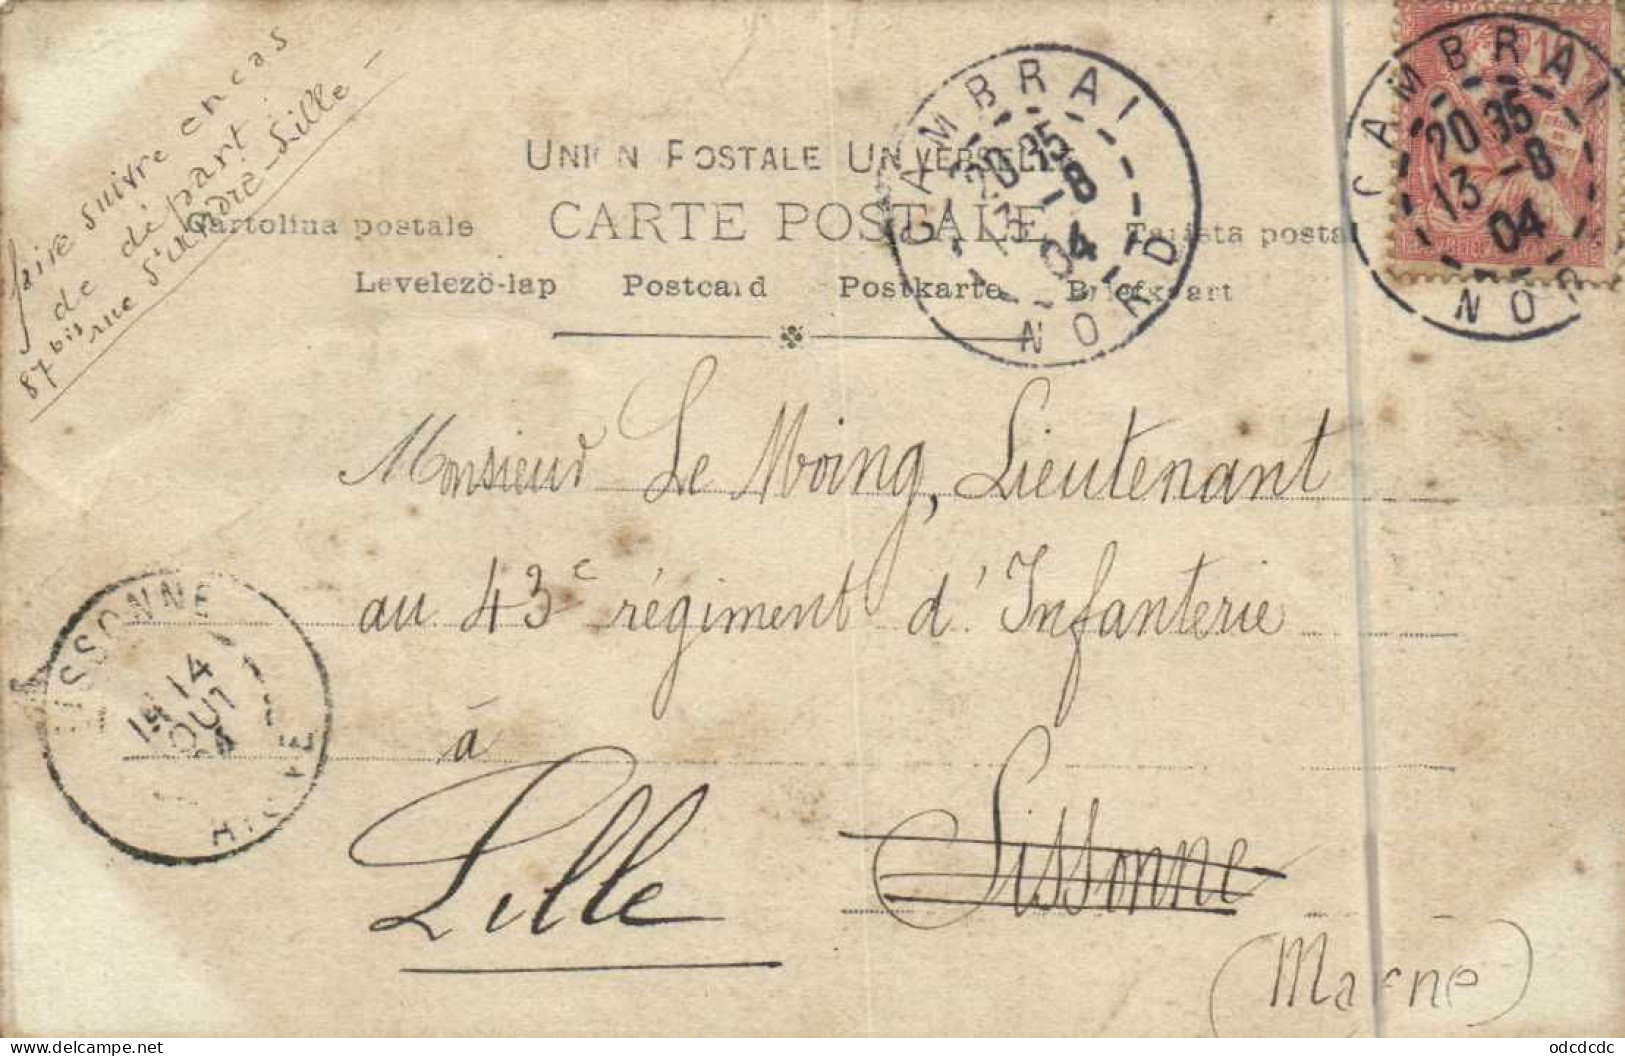 faire suivre en cas
de départ.
87 bis rue St André - Lille -
UNION POSTALE UNIVERSELLE
CARTE POSTALE
Cartolina postale
Tarjista postal
Levelezö-lap Postcard Postkarte Briefkaart
CAMBRAI
20 35
13 -8
04
NORD
CAMBRAI
20 35
13 -8
04
NORD
Monsieur Le Moing, Lieutenant
au 43e régiment d'Infanterie
à
Lille Sissonne
(Marne)
SISSONNE
14
AOUT
04
AISNE
odcdcdc